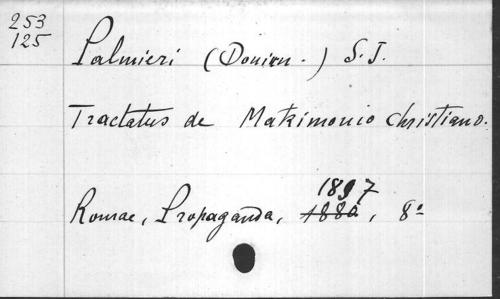 253
125
Palmieri (Domin.) S. J.
Tractatus de Matrimonio Christiano.
1897
Romae, Propaganda, 1880, 8º